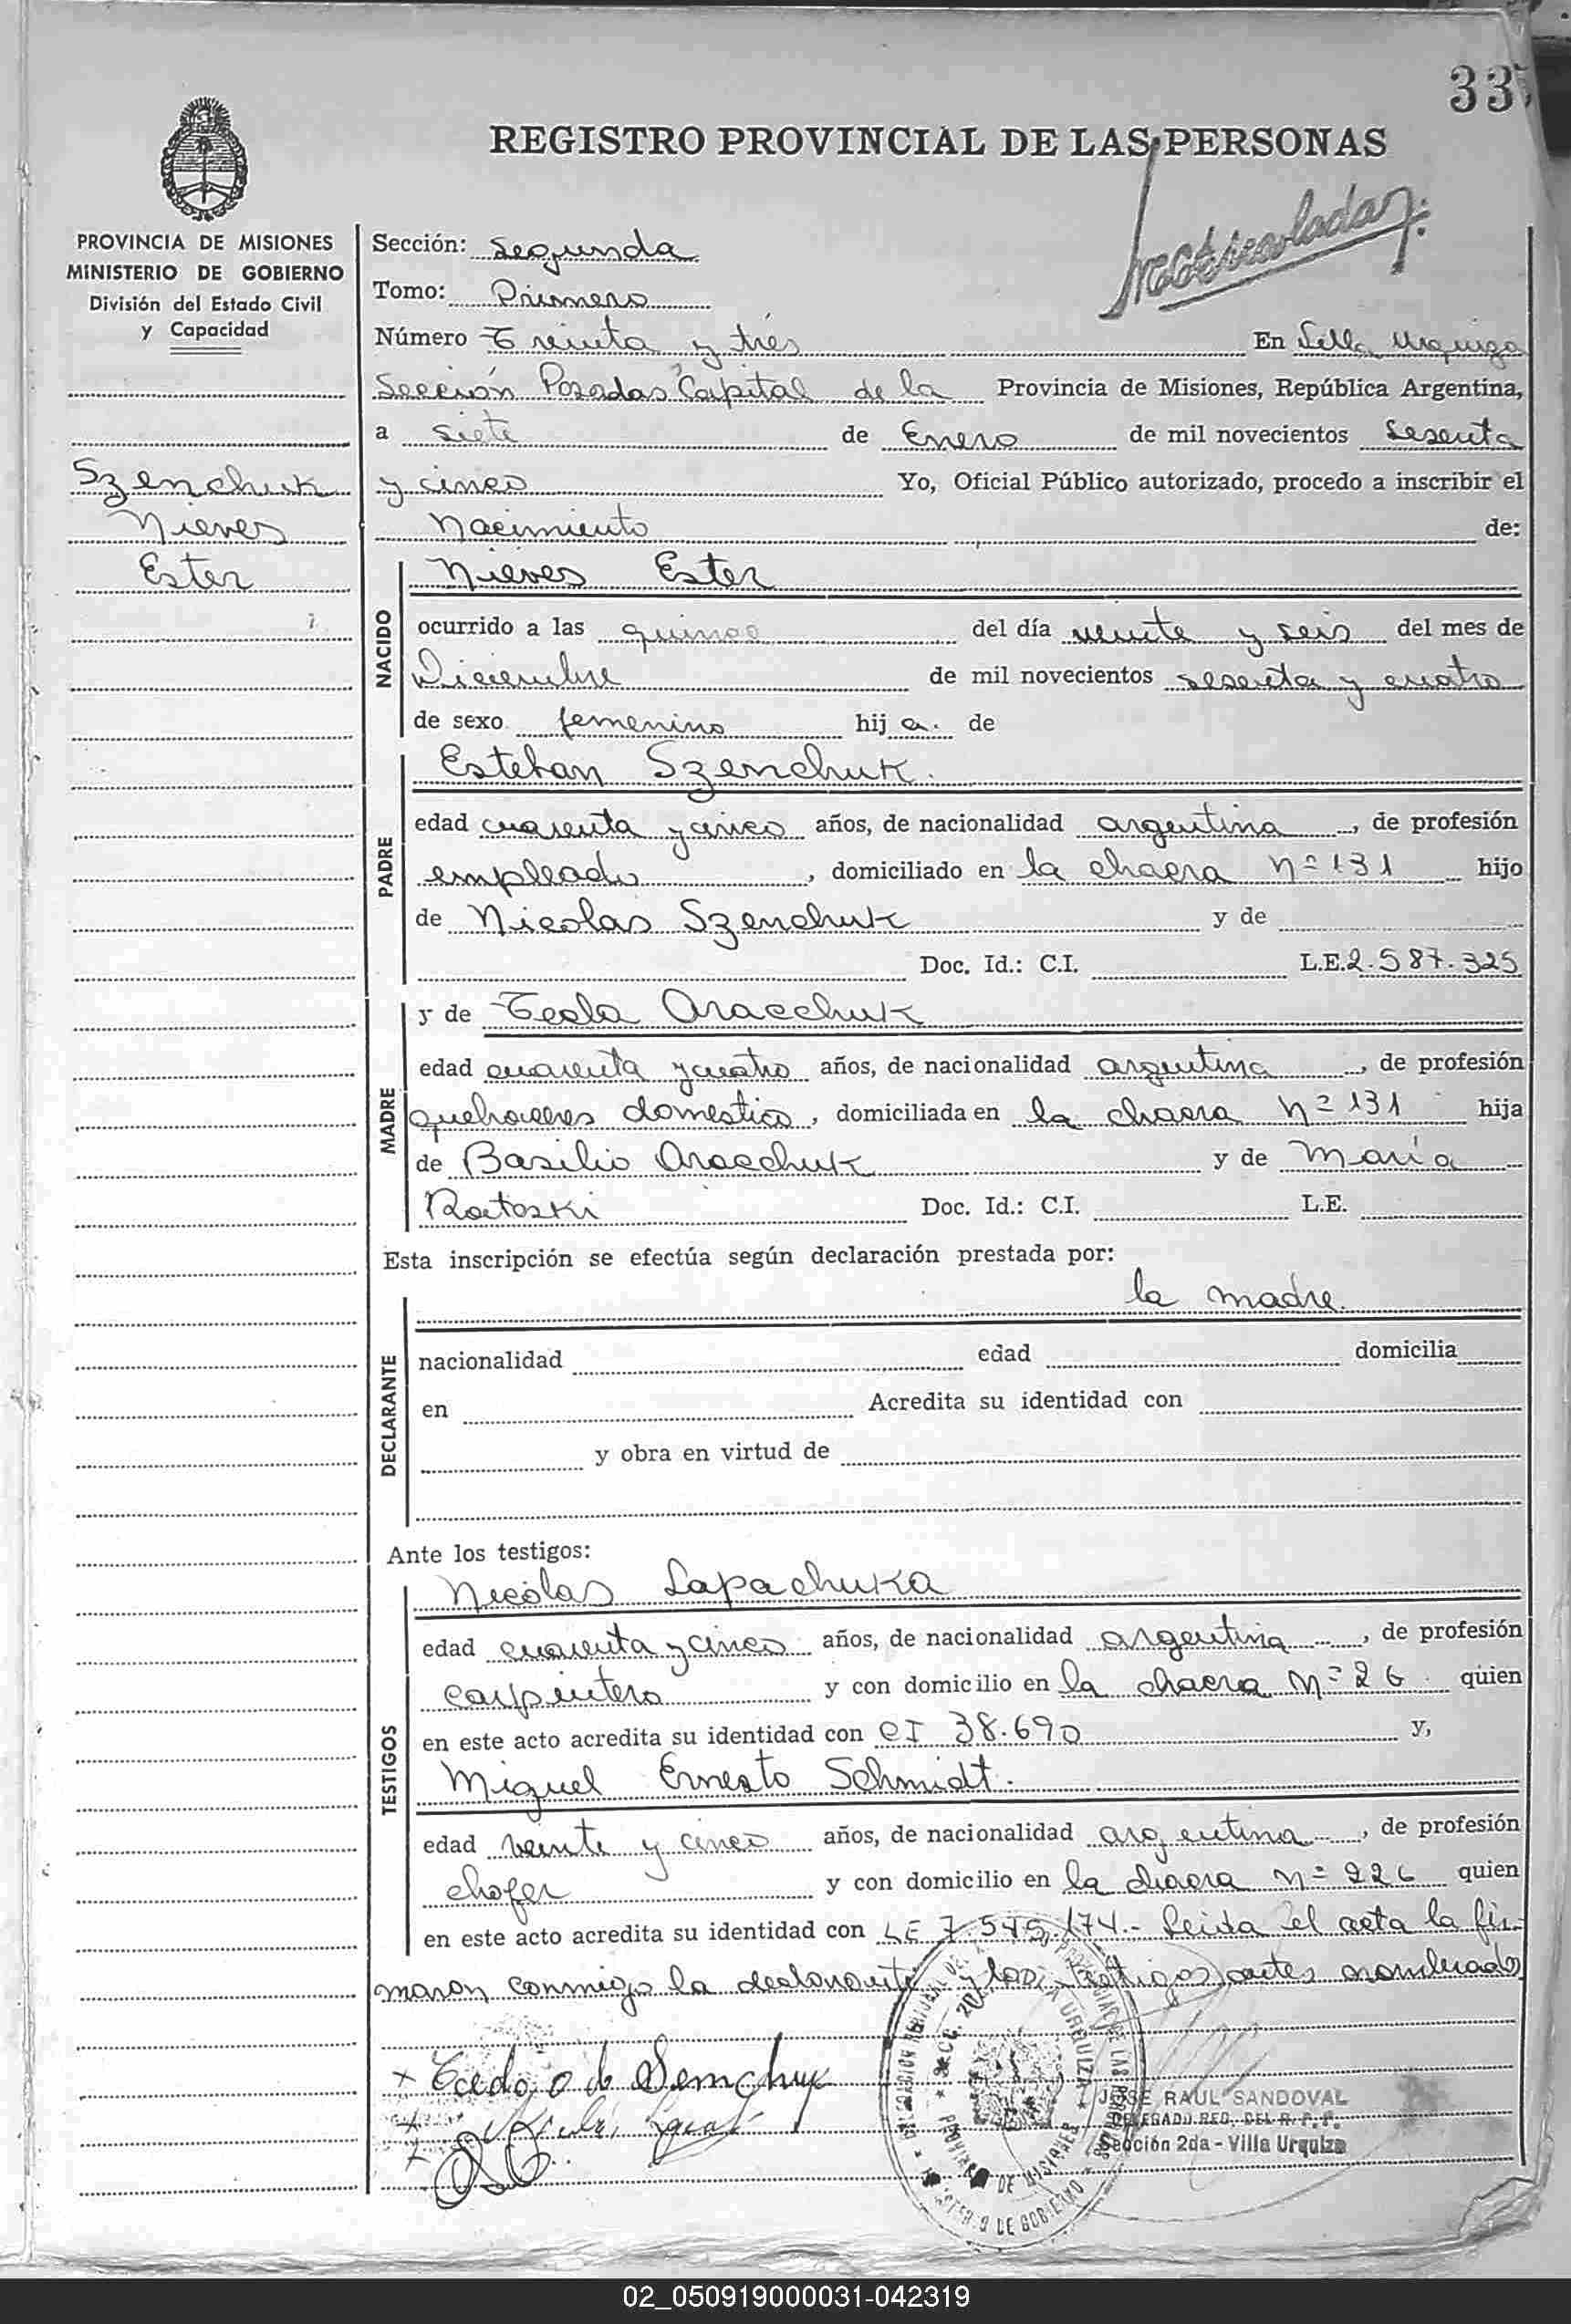 33
REGISTRO PROVINCIAL DE LAS PERSONAS
Matriculada
PROVINCIA DE MISIONES
MINISTERIO DE GOBIERNO
División del Estado Civil
y Capacidad
Szenchuk
Nieves
Ester
Sección: Segunda
Tomo: Primero
Número Treinta y tres En Villa Urquiza
Sección Posadas Capital de la Provincia de Misiones, República Argentina,
a siete de Enero de mil novecientos sesenta
y cinco Yo, Oficial Público autorizado, procedo a inscribir el
Nacimiento de:
NACIDO
Nieves Ester
ocurrido a las quince del día veinte y seis del mes de
Diciembre de mil novecientos sesenta y cuatro
de sexo femenino hij a. de
PADRE
Esteban Szenchuk.
edad cuarenta y cinco años, de nacionalidad argentina, de profesión
empleado, domiciliado en la chacra Nº 131 hijo
de Nicolas Szenchuk y de
Doc. Id.: C.I. L.E. 2.587.325
MADRE
y de Tecla Oracchuk
edad cuarenta y cuatro años, de nacionalidad argentina, de profesión
quehaceres domestico, domiciliada en la chacra Nº 131 hija
de Basilio Oracchuk y de Maria
Ratoski Doc. Id.: C.I. L.E.
Esta inscripción se efectúa según declaración prestada por:
DECLARANTE
la madre.
nacionalidad edad domicilia
en Acredita su identidad con
y obra en virtud de
Ante los testigos:
TESTIGOS
Nicolas Lapachuka
edad cuarenta y cinco años, de nacionalidad argentina, de profesión
carpintero y con domicilio en la chacra Nº 26 quien
en este acto acredita su identidad con CI 38.690 y,
Miguel Ernesto Schmidt.
edad veinte y cinco años, de nacionalidad argentina, de profesión
chofer y con domicilio en la chacra Nº 226 quien
en este acto acredita su identidad con LE 7.545.174.- Leida el acta la fir-
maron conmigo la declarante y los testigos antes nombrado
JOSE RAUL SANDOVAL
DELEGADO REG. DEL R. P. P.
Sección 2da - Villa Urquiza
02_050919000031-042319